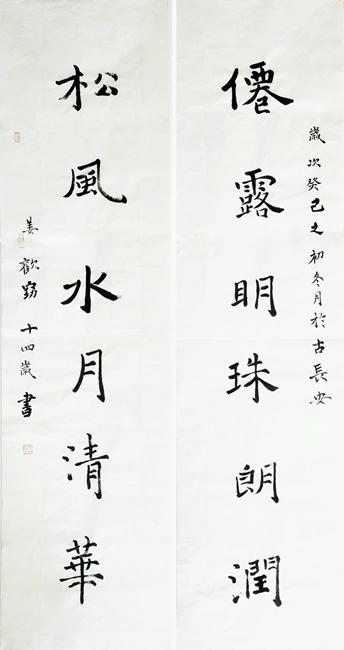 歲次癸巳之初冬月於古長安
僊露明珠朗潤
松風水月清華
姜歡窈十四歲書